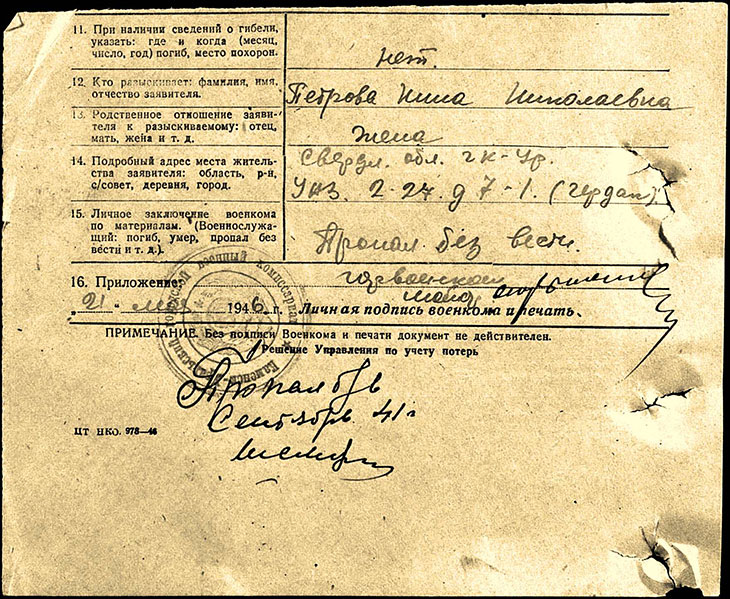 11. При наличии сведений о гибели,
указать: где и когда (месяц,
число, год) погиб, место похорон.
нет.
12. Кто разыскивает: фамилия, имя,
отчество заявителя.
Петрова Нина Николаевна
13. Родственное отношение заяви-
теля к разыскиваемому: отец,
мать, жена и т. д.
жена
14. Подробный адрес места житель-
ства заявителя: область, р-н,
с/совет, деревня, город.
Свердл. обл. г К-Ур.
УАЗ. 2-27 д 7-1. (чердак).
15. Личное заключение военкома
по материалам. (Военнослужа-
щий: погиб, умер, пропал без
вести и т. д.).
Пропал без вести.
16. Приложение:
горвоенком
„21" мая 1946 г. Личная подпись военкома и печать.
ПРИМЕЧАНИЕ. Без подписи Военкома и печати документ не действителен.
Решение Управления по учету потерь
Пропал б/в
Сентябрь 41 г
ЦТ НКО. 978—46